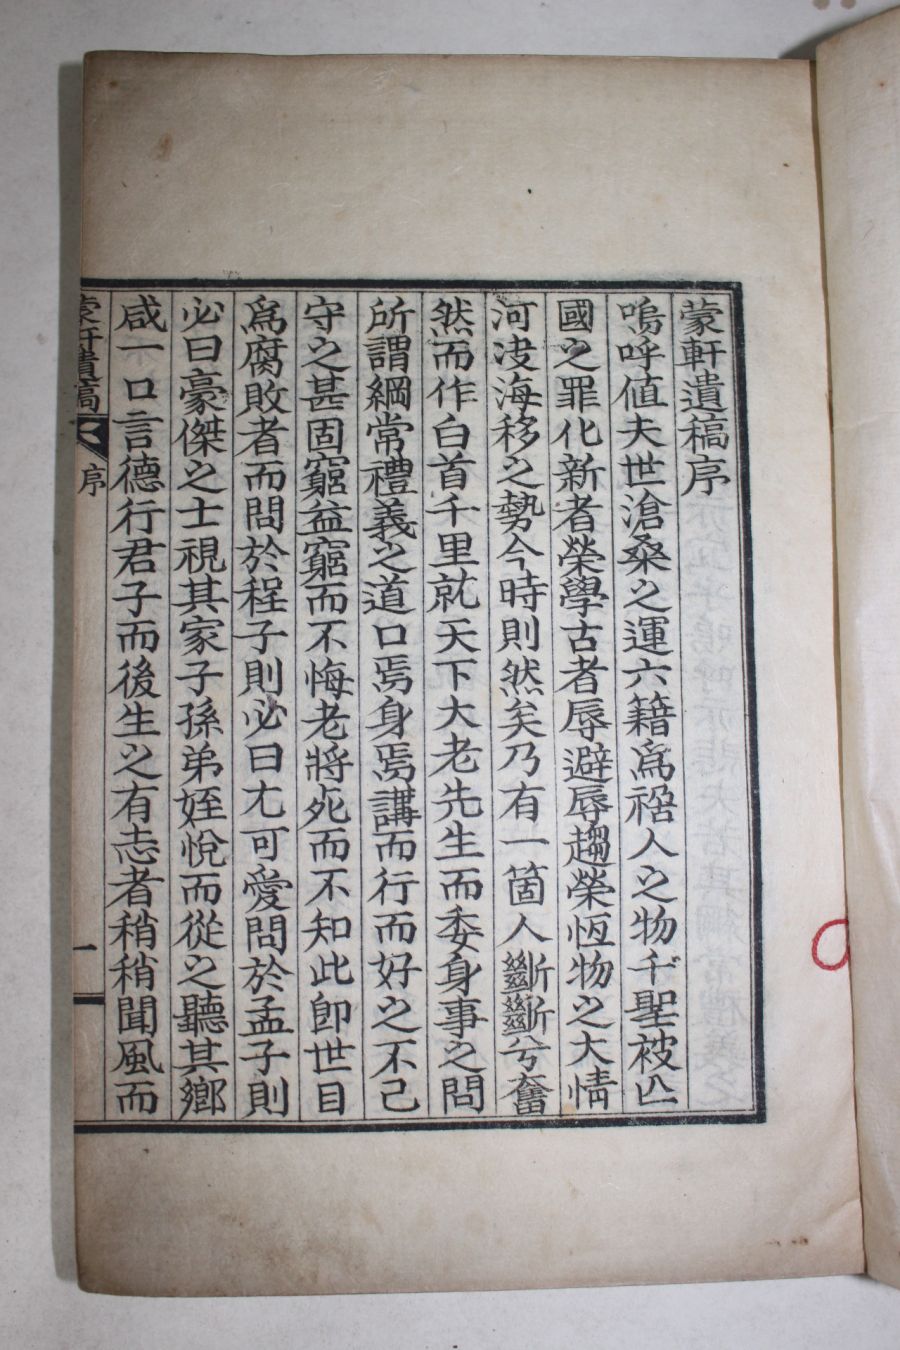 蒙軒遺稿序
嗚呼値夫世滄桑之運六籍爲禍人之物千聖被亡
國之罪化新者榮學古者辱避辱趨榮恆物之大情
河决海移之勢今時則然矣乃有一箇人斷斷兮奮
然而作白首千里就天下大老先生而委身事之問
所謂綱常禮義之道口焉身焉講而行而好之不已
守之甚固窮益窮而不悔老將死而不知此卽世目
爲腐敗者而問於程子則必曰尤可愛問於孟子則
必曰豪傑之士視其家子孫弟姪悅而從之聽其鄕
咸一口言德行君子而後生之有志者稍稍聞風而
蒙軒遺稿
序
一